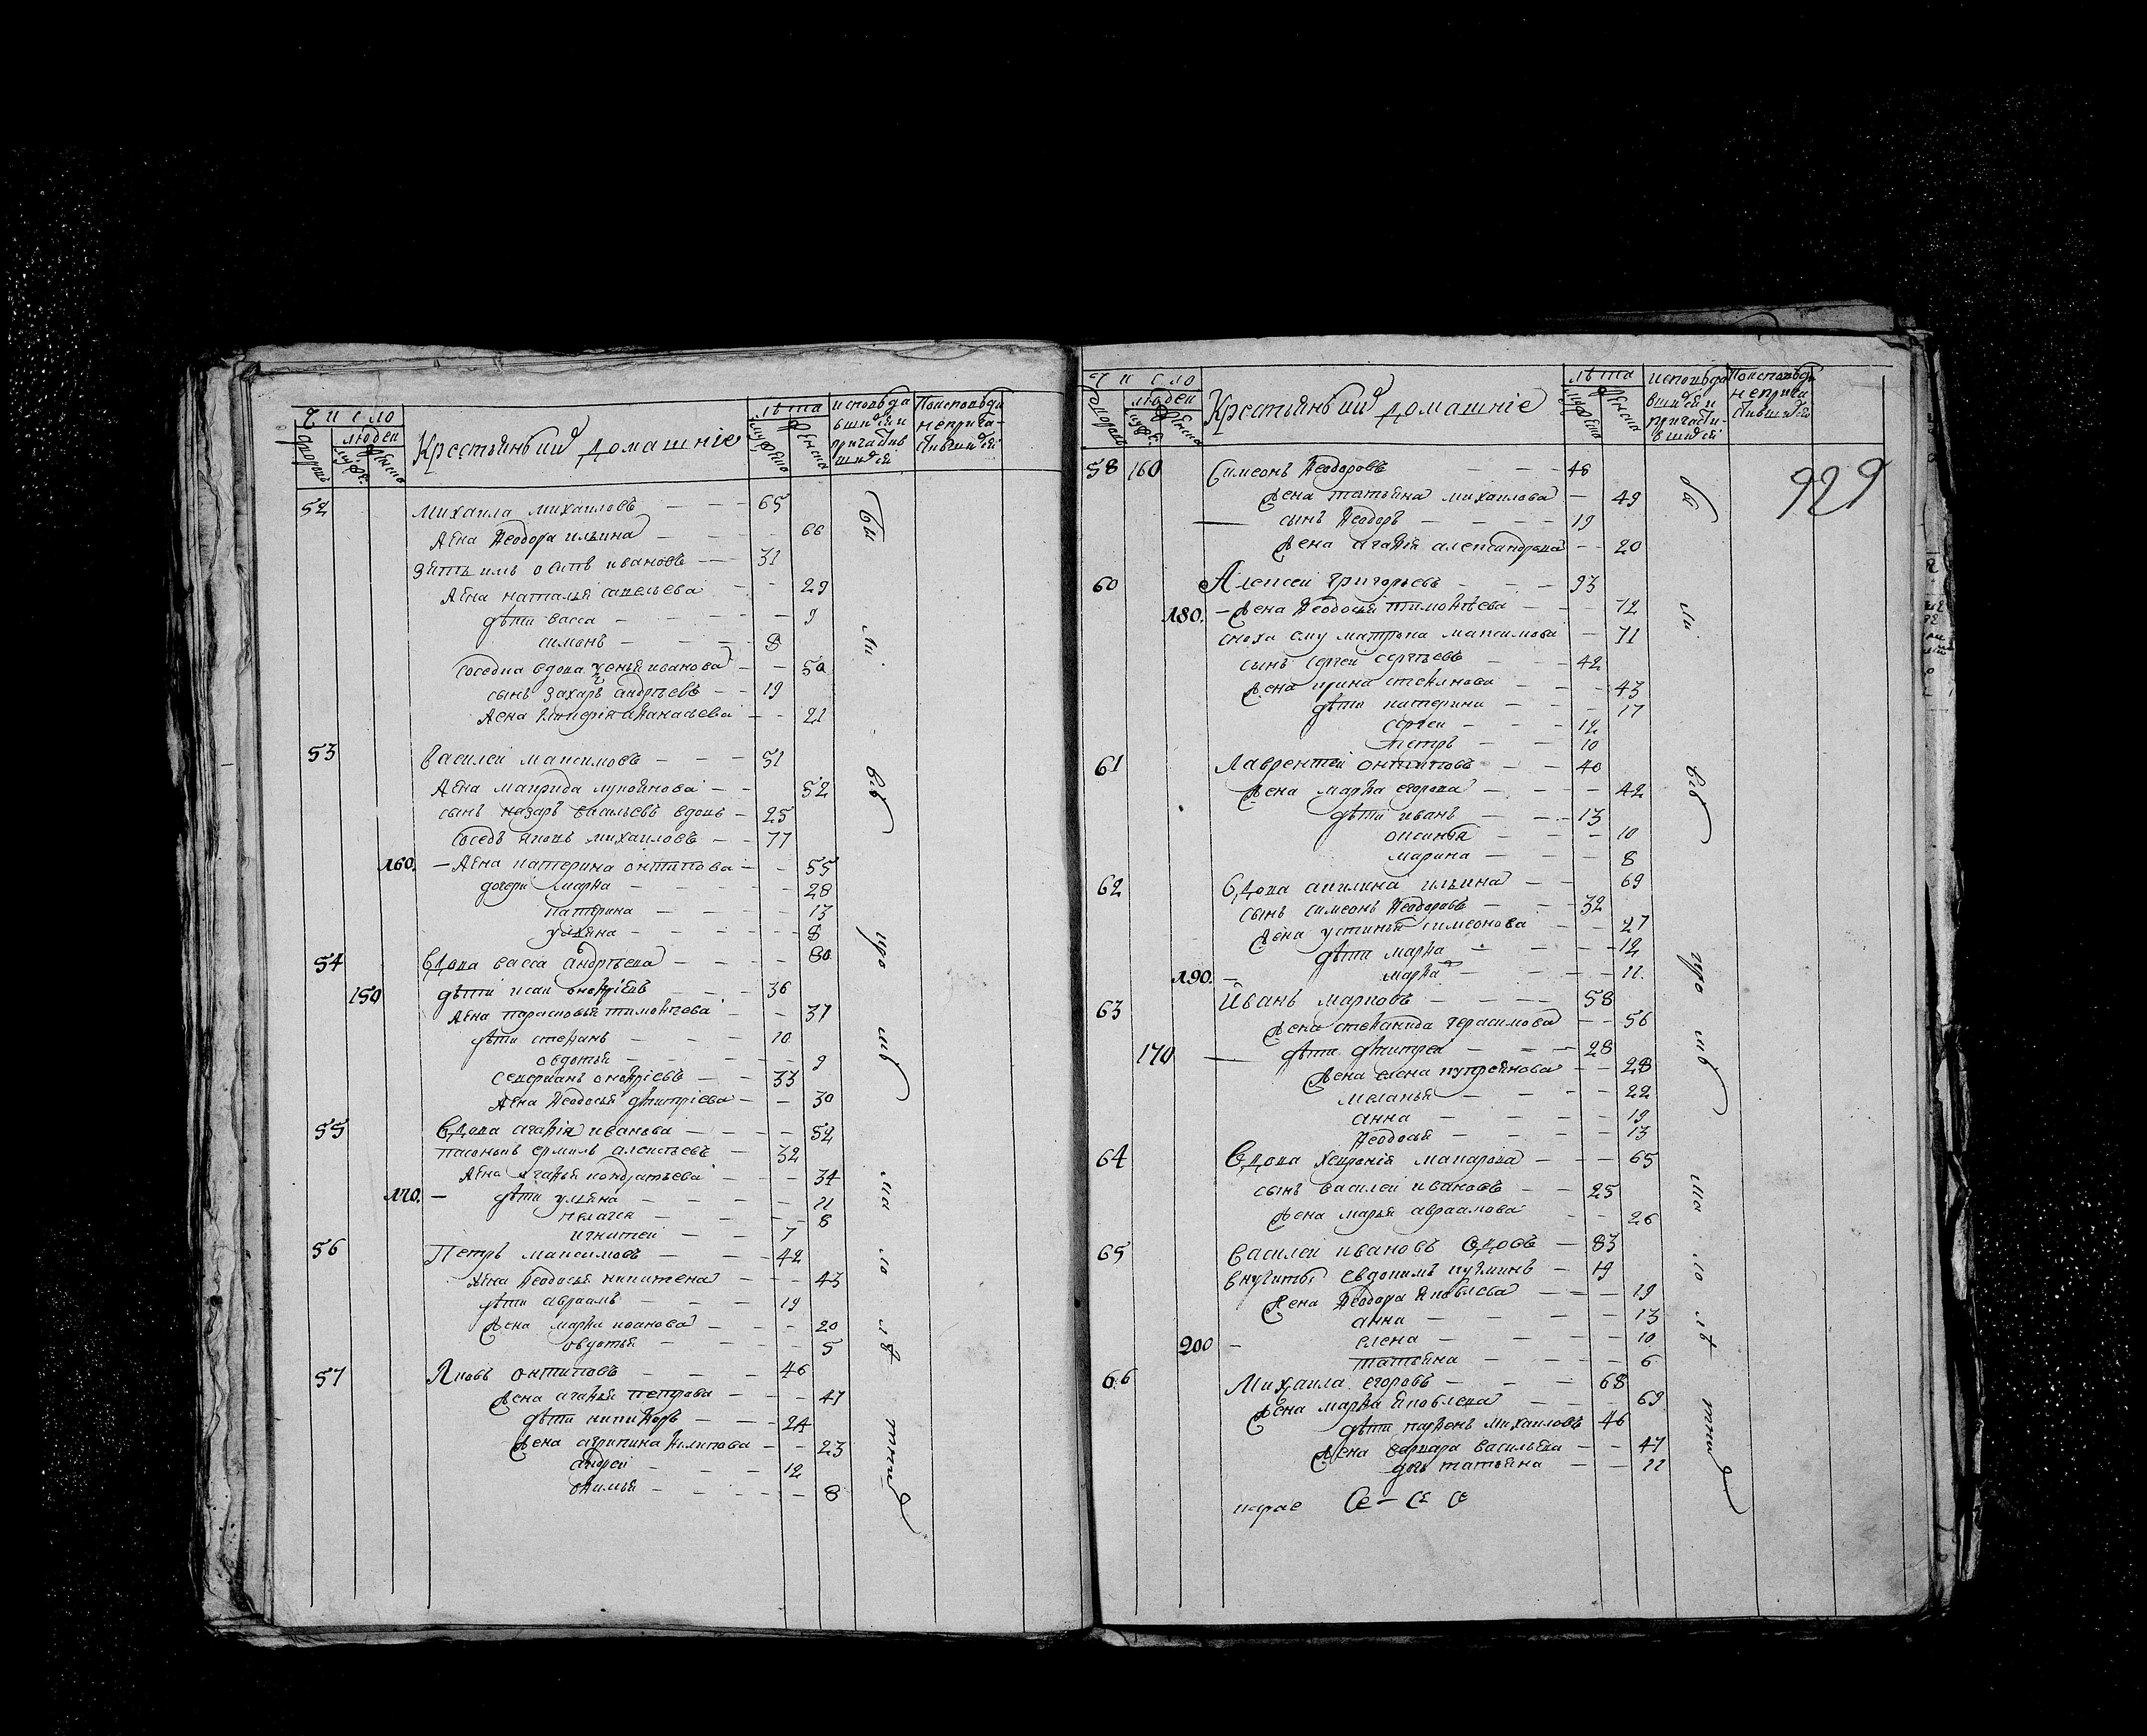 Число
людей
дворовъ
муж:
женска
Крестьянъ ий домашніе
лѣта
мужеска
женска
исповѣда
вшихся и
причастив
шихся
Поисповѣди
неприча-
стившихся
52 Михаила михаиловъ — — — 65
жена Ѳеодора ильина — — 66
Зять имъ осипъ ивановъ — — 31
жена наталья савельева — — 29
дѣти васса — — 9
симонъ — — 8
соседка вдова ивановa — — 50
сынъ захаръ андрѣевъ — — 19
жена аѳанасьева — — 21
53 Василеи максимовъ — — — 51
жена маврида лукоянова — — 52
сынъ назаръ васильевъ вдовъ — 25
соседъ яковъ михаиловъ — — 77
160. — жена катерина онтипова — — 55
дочери марѳа — — 28
катерина — — 13
ульяна — — 8
54 Вдова васса андрѣева — — 80
150 дѣти исаи онофріевъ — — 36
жена парасковья тимоѳѣева — — 37
дѣти стеѳанъ — — 10
овдотья — — 9
северианъ онофріевъ — — 33
жена Ѳеодосья дмитріева — — 30
55 Вдова агаѳія иванова — — 52
пасынокъ ермилъ алексѣевъ — 32
жена агаѳья кондратьева — — 34
170. — дѣти ульяна — — 11
пелагея — — 8
игнатеи — — 7
56 Петръ максимовъ — — 42
жена Ѳеодосья никитена — — 43
дѣти авраамъ — — 19
жена марѳа иванова — — 20
овдотья — — 5
57 Яковъ онтиповъ — — 46
жена агаѳья петрова — — 47
дѣти никиѳоръ — — 24
жена агрипина Ѳилипова — — 23
андреи — — 12
оѳимья — — 8
Бы
ли
всѣ
про
шѣ
ша
го
лѣ
та
Число
людей
дворовъ
муж:
женска
Крестьянъ ий домашніе
лѣта
мужеска
женска
исповѣда
вшихся и
причасти-
вшихся
Поисповѣди
неприча
стившихся
929
58 160 Симеонъ Ѳеодоровъ — — 48
жена татьяна михаилова — 49
— сынъ Ѳеодоръ — — 19
жена агаѳія александрова — — 20
60 Алексеи григорьевъ — — 93
180. — жена Ѳеодосья тимоѳѣева — — 72
сноха ему матрона максимова — 71
сынъ сергеи сергѣевъ — — 42
жена ирина стеѳанова — — 43
дѣти катерина — — 17
сергеи — — 12
петръ — — 10
61 Лаврентеи онтиповъ — — 40
жена марѳа егорова — — 42
дѣти иванъ — — 13
оксинья — — 10
марина — — 8
62 Вдова акилина ильина — — 69
сынъ симеонъ Ѳеодоровъ — — 32
жена устинья симеонова — — 27
дѣти марѳа — — 12
190. — марѳа — — 11.
63 Иванъ марковъ — — 58
жена стеѳанида герасимова — — 56
170 — дѣти дмитреи — — 28
жена елена купреянова — — 28
меланья — — 22
анна — — 19
Ѳеодосья — — 13
64 Вдова хевронія макарова — — 65
сынъ василеи ивановъ — — 25
жена марья авраамова — — 26
65 Василеи ивановъ вдовъ — 83
внучитъ евдокимъ кузминъ — 19
жена Ѳеодора яковлева — — 19
анна — — 13
200 — елена — — 10
татьяна — — 6
66 Михаила егоровъ — — 68
жена марѳа яковлева — — 69
дѣти парѳенъ михаиловъ 46
жена варвара васильева — — 47
дочь татьяна — — 11